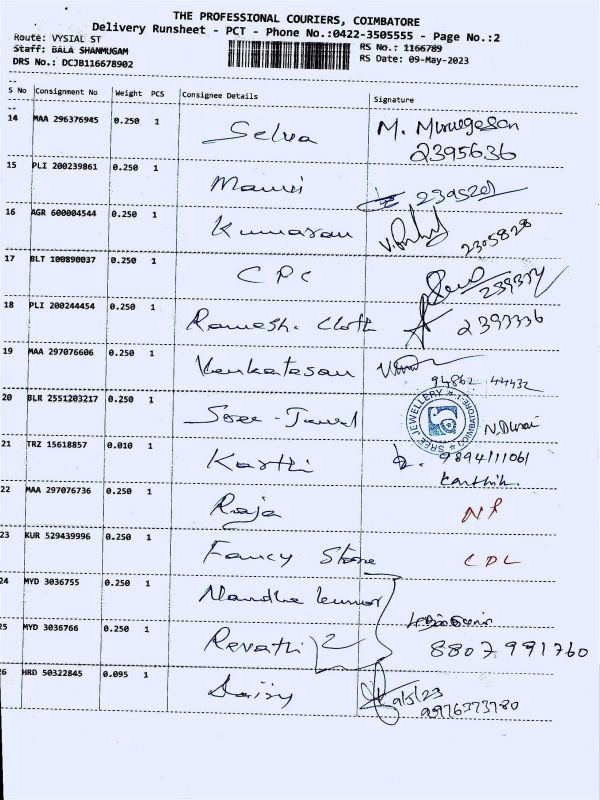 THE PROFESSIONAL COURIERS, COIMBATORE
Delivery Runsheet - PCT - Phone No.:0422-3505555 - Page No.:2
Route: VYSIAL ST
Staff: BALA SHANMUGAM RS No.: 1166789
DRS No.: DCJB116678902 RS Date: 09-May-2023
S No Consignment No Weight PCS Consignee Details Signature
14 MAA 296376945 0.250 1 Selva M. Murugesan
2395636
15 PLI 200239861 0.250 1 2395201
16 AGR 600004544 0.250 1 Kumaran 2305828
17 BLT 100890037 0.250 1 CPC
18 PLI 200244454 0.250 1 Ramesh. Cloth
19 MAA 297076606 0.250 1 Venkatesan
94862 44432
20 BLR 2551203217 0.250 1 Sree - Jewel SREE JEWELLERY COIMBATORE-1 N.Durai
21 TRZ 15618857 0.010 1 Karthi 9894111061
Karthik
22 MAA 297076736 0.250 1 Raja NP
23 KUR 529439996 0.250 1 Fancy Store CDL
24 MYD 3036755 0.250 1 Nandha kumar
25 MYD 3036766 0.250 1 Revathi 2 8807991760
26 HRD 50322845 0.095 1 Daisy 9/5/23